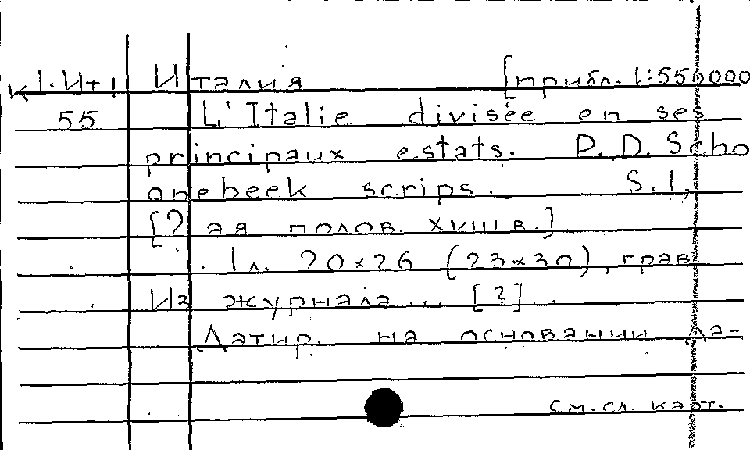 К 1-Ит1 Италия [прибл. 1:550000
55 L'Italie divisée en ses
principaux estats. D. D. Scho
onebeek scrips. S. l,
[? ая полов. XVIII в.]
1 л. 20×26 (23×30), грав.
Из журнала... [?].
Датир. на основании да-
см. сл. карт.